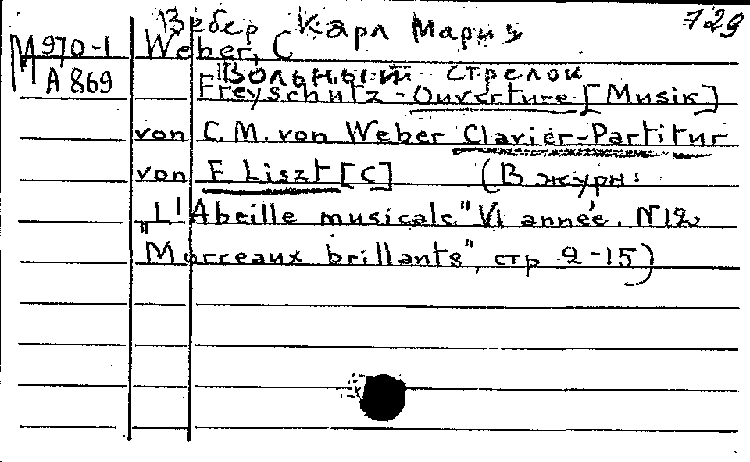 Вебер Карл Мария 729
М 970-1 Weber, C
А 869 "Вольный стрелок
Freyschutz - Ouverture [Musik]
von C. M. von Weber Clavier-Partitur
von F. Liszt [C] (В журн:
"L'Abeille musicale" VI année. N12
Morceaux brillants", стр 2-15)